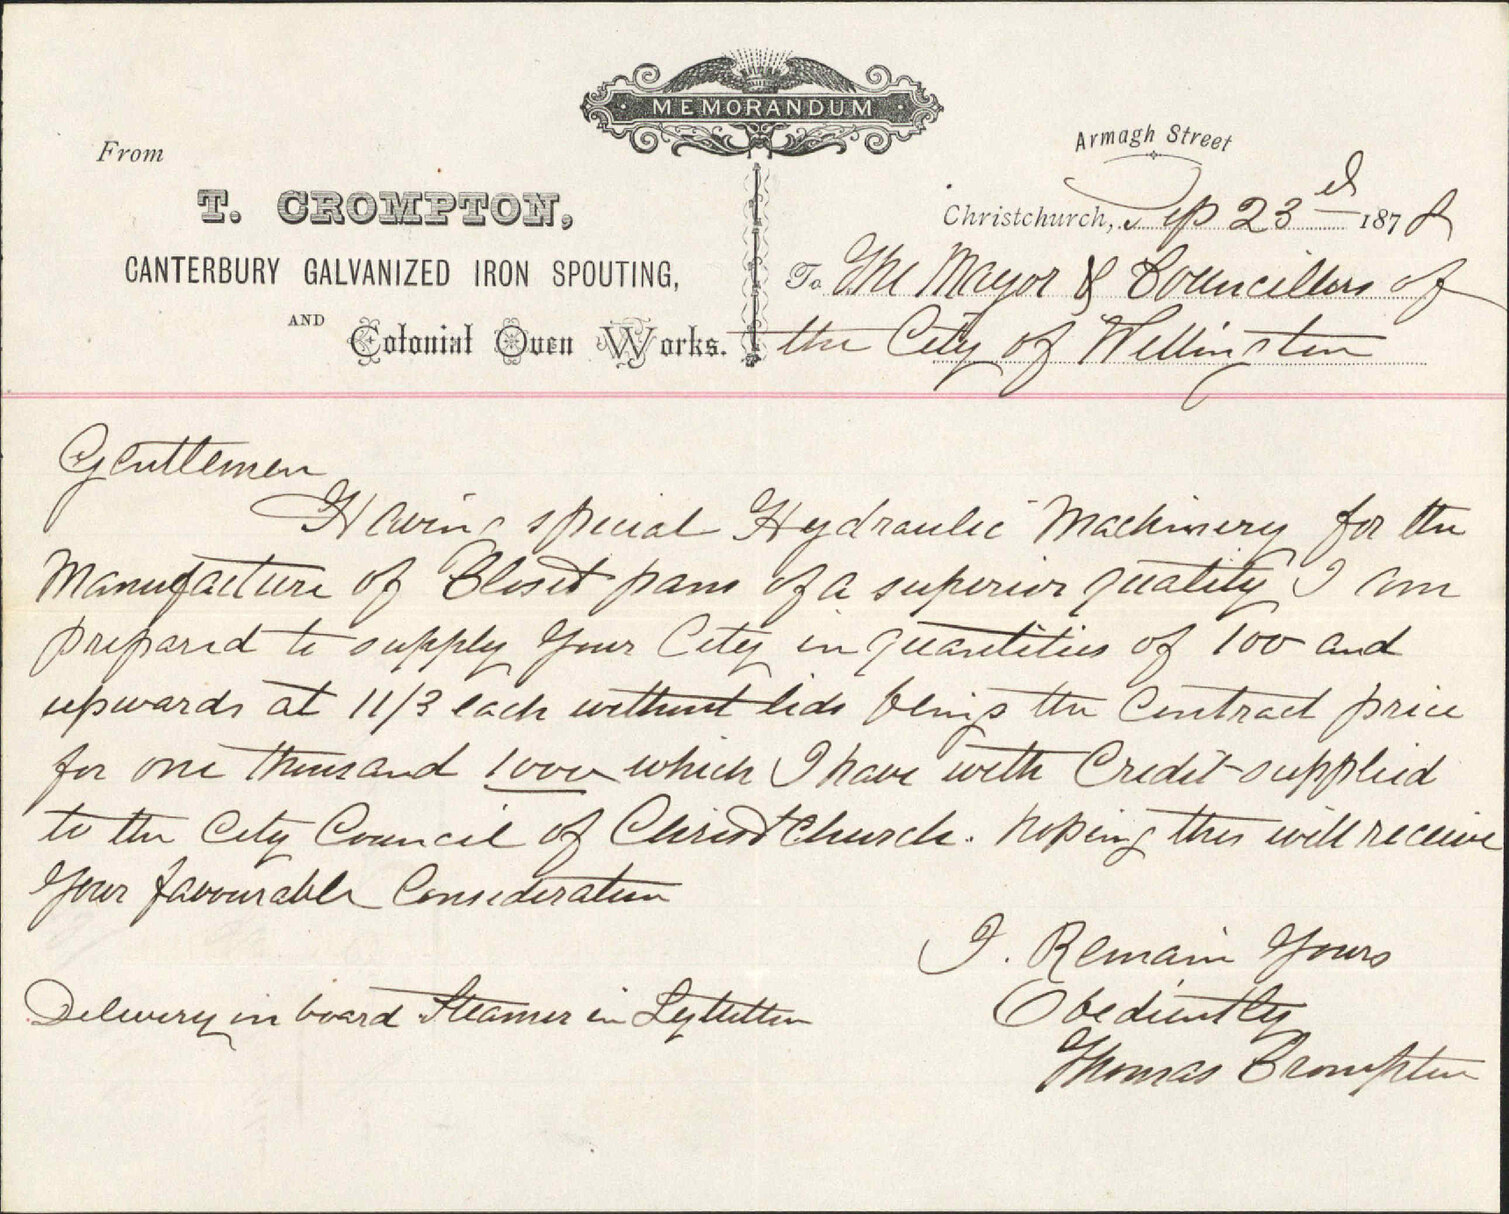 MEMORANDUM
From
T. CROMPTON,
CANTERBURY GALVANIZED IRON SPOUTING,
AND Colonial Oven Works.
Armagh Street
Christchurch, Sep 23rd 1878
To The Mayor & Councillors of
the City of Wellington
Gentlemen
Having special Hydraulic Machinery for the
Manufacture of Closet pans of a superior quality I am
prepared to supply your City in quantities of 100 and
upwards at 11/3 each without lids being the Contract price
for one thousand 1000 which I have with Credit supplied
to the City Council of Christchurch. hoping this will receive
your favourable Consideration
I. Remain Yours
Obediently
Thomas Crompton
Delivery in board Steamer in Lyttelton